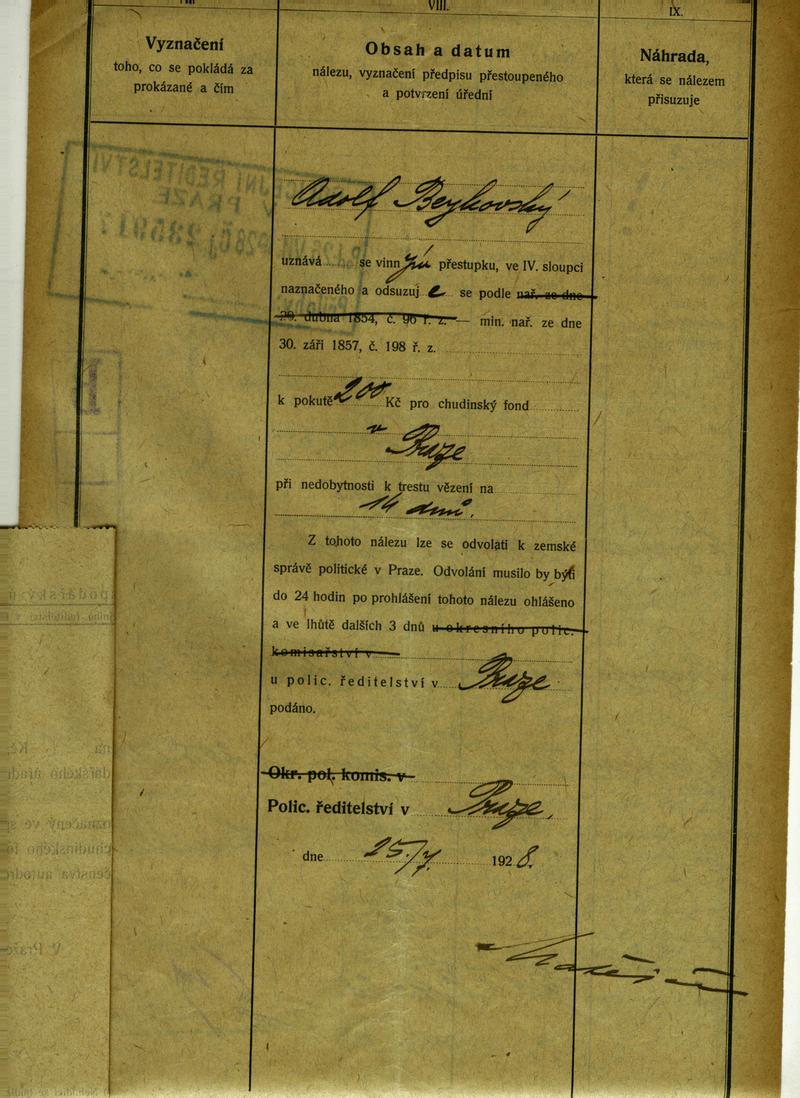 VIII.
IX.
Vyznačení
toho, co se pokládá za
prokázané a čím
Obsah a datum
nálezu, vyznačení předpisu přestoupeného
a potvrzení úřední
Náhrada,
která se nálezem
přisuzuje
Adolf Beykovský
uznává se vinným přestupku, ve IV. sloupci
naznačeného a odsuzuje se podle nař. ze dne
20. dubna 1854, č. 96 ř. z. — min. nař. ze dne
30. září 1857, č. 198 ř. z.
k pokutě 200 Kč pro chudinský fond
v Praze
při nedobytnosti k trestu vězení na
14 dnů.
Z tohoto nálezu lze se odvolati k zemské
správě politické v Praze. Odvolání musilo by býti
do 24 hodin po prohlášení tohoto nálezu ohlášeno
a ve lhůtě dalších 3 dnů u okresního polic.
komisařství v
u polic. ředitelství v Praze
podáno.
Okr. pol. komis. v
Polic. ředitelství v Praze,
dne 25/7. 1928.